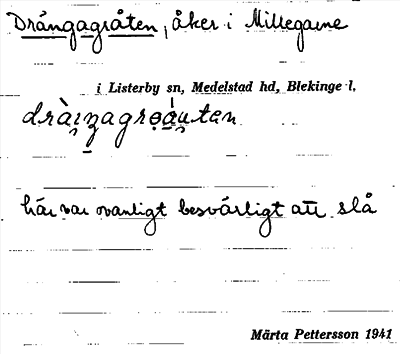 Drångagråten, åker i Millegarne
i Listerby sn, Medelstad hd, Blekinge l,
här var ovanligt besvärligt att slå
Märta Pettersson 1941